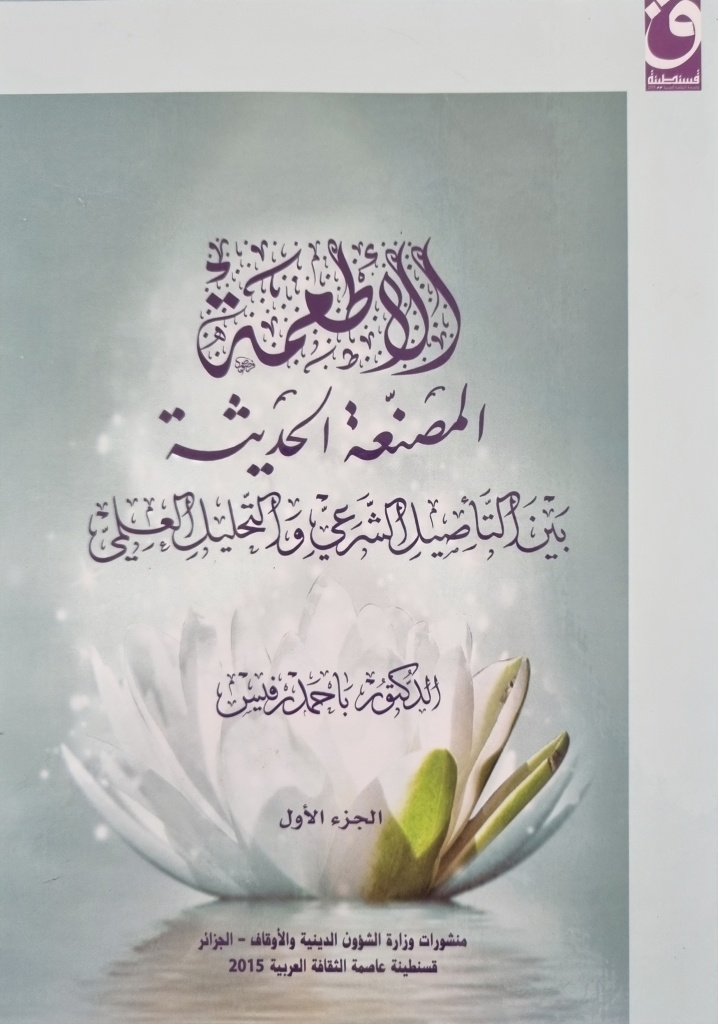 قسنطينة
الأطعمة
المصنّعة الحديثة
بَيْنَ التَّأصِيلِ الشَّرعِيِّ وَالتَّحْلِيلِ العِلمِيِّ
الدكتور باحمد رفيس
الجزء الأول
منشورات وزارة الشؤون الدينية والأوقاف - الجزائر
قسنطينة عاصمة الثقافة العربية 2015